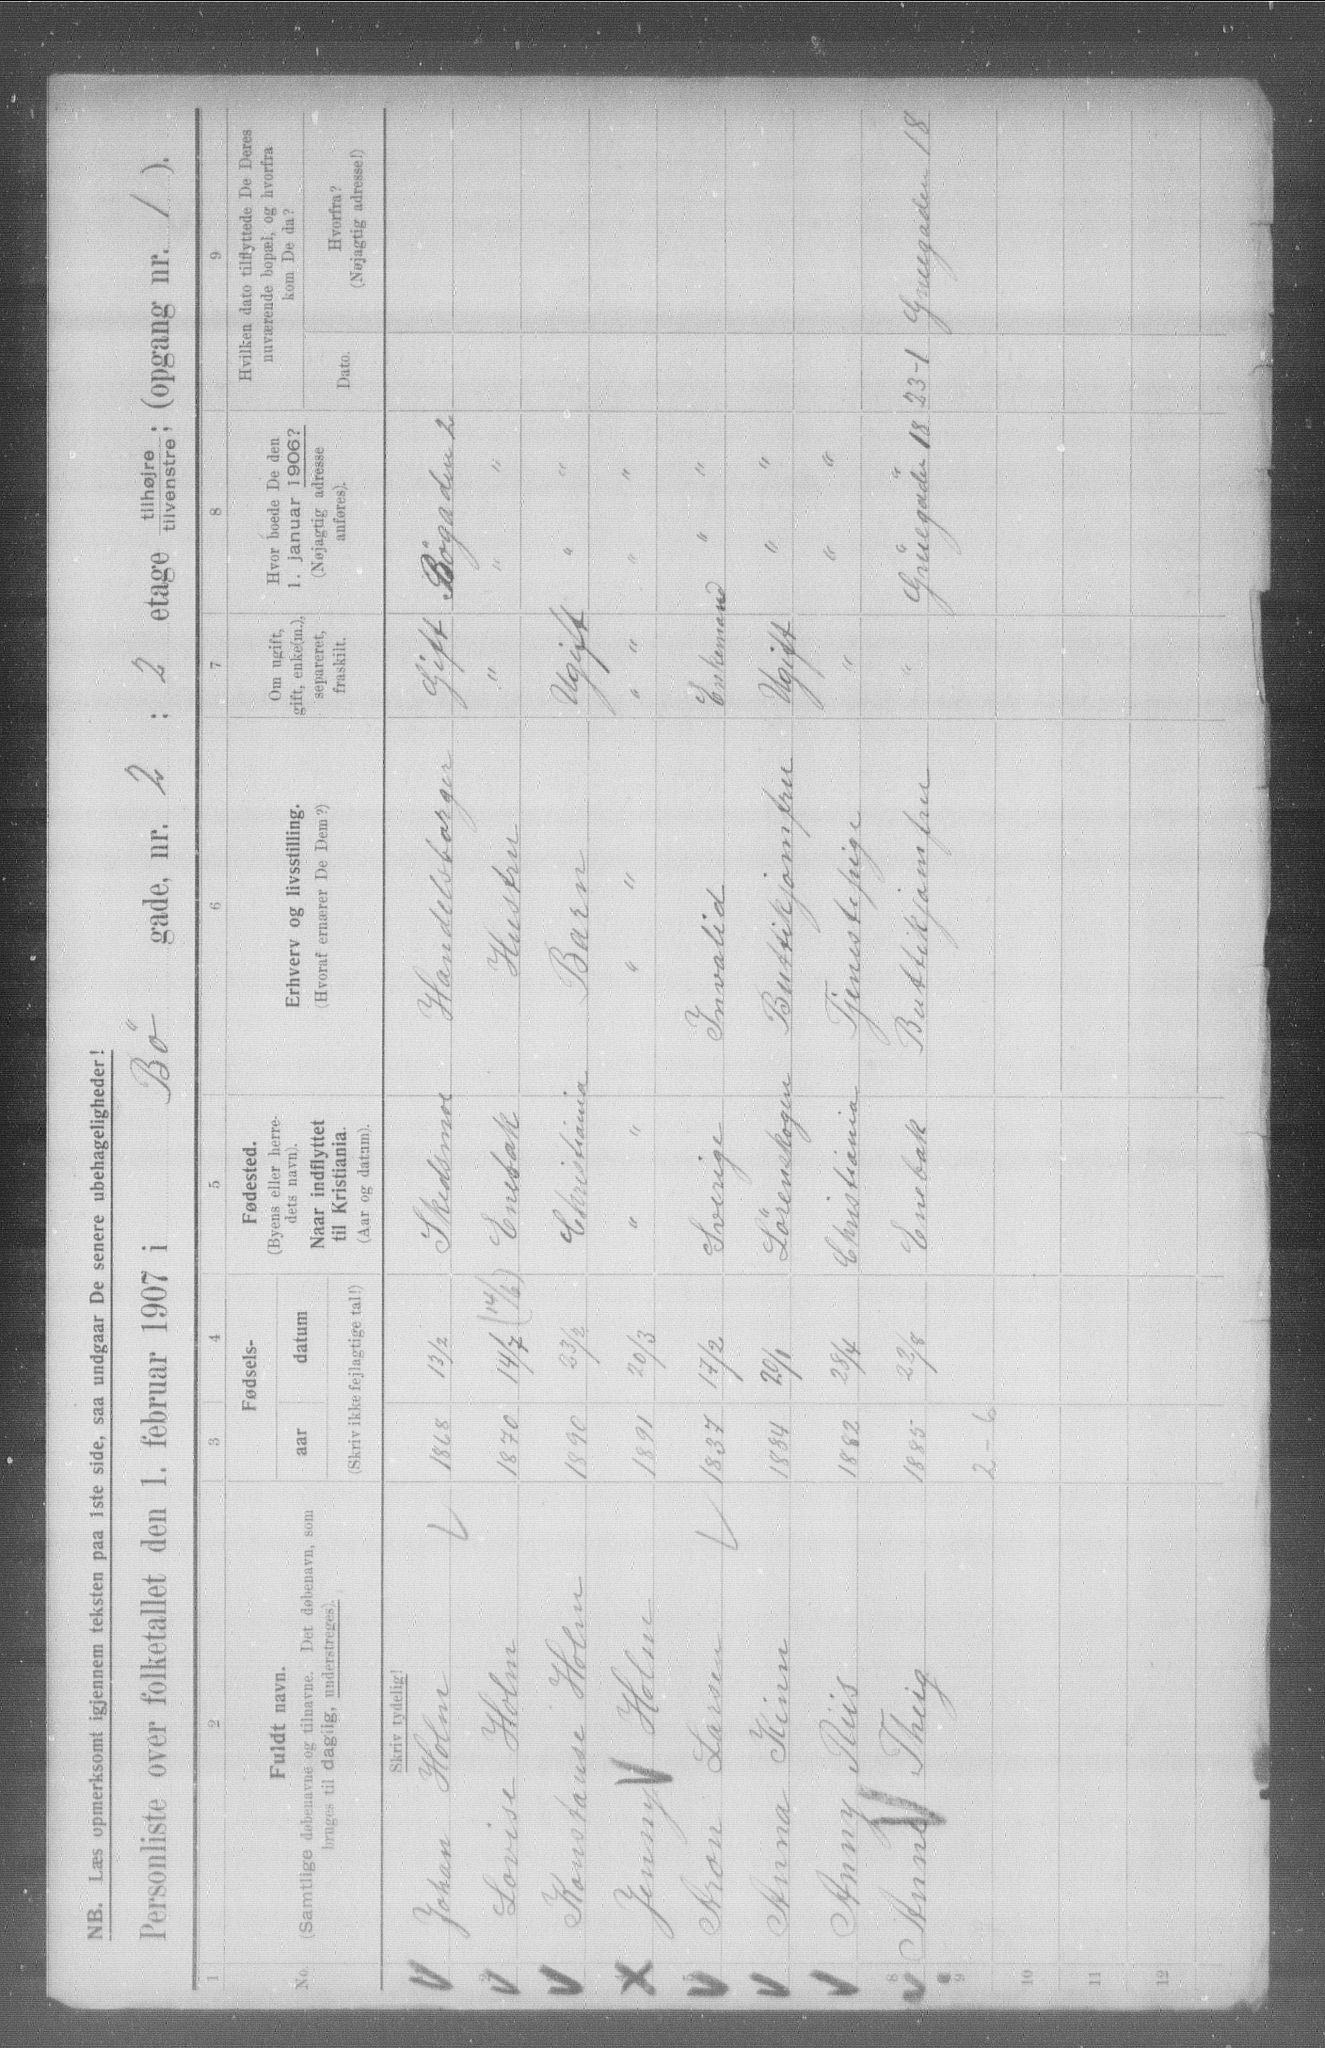 NB. Læs opmerksomt igjennem teksten paa 1ste side, saa undgaar De senere ubehageligheder!
Personliste over folketallet den 1. februar 1907 i Bö gade, nr. 2 : 2 etage tilhøjre / tilvenstre; (opgang nr. 1 ).
1 2 3 4 5 6 7 8 9
No. Fuldt navn. (Samtlige døbenavne og tilnavne. Det døbenavn, som bruges til daglig, understreges).
Fødsels- aar datum (Skriv ikke fejlagtige tal!)
Fødested. (Byens eller herredets navn). Naar indflyttet til Kristiania. (Aar og datum).
Erhverv og livsstilling. (Hvoraf ernærer De Dem?)
Om ugift, gift, enke(m.), separeret, fraskilt.
Hvor boede De den 1. januar 1906? (Nøjagtig adresse anføres).
Hvilken dato tilflyttede De Deres nuværende bopæl, og hvorfra kom De da?
Dato. Hvorfra? (Nøjagtig adresse!)
Skriv tydelig!
Johan Holm 1868 13/2 Skedsmoe Handelsborger Gift Bögaden 2
Lovise Holm 1870 14/7 (14/6) Enebak Hustru " " "
Konstanse Holm 1890 23/2 Christiania Barn Ugift " "
Jenny Holm 1891 20/3 " " " " " " " "
Aron Larsen 1837 17/2 Sverige Invalid Enkemand " "
Anna Kinn 1884 20/1 Lörenskogen Buttikjomfru Ugift " "
Anny Riis 1882 28/4 Christiania Tjenestepige " " "
8 Anne Thuig 1885 22/8 Enebak Buttikjomfru " Gruegaden 18 23-1 Gruegaden 18
9 2-6
10
11
12